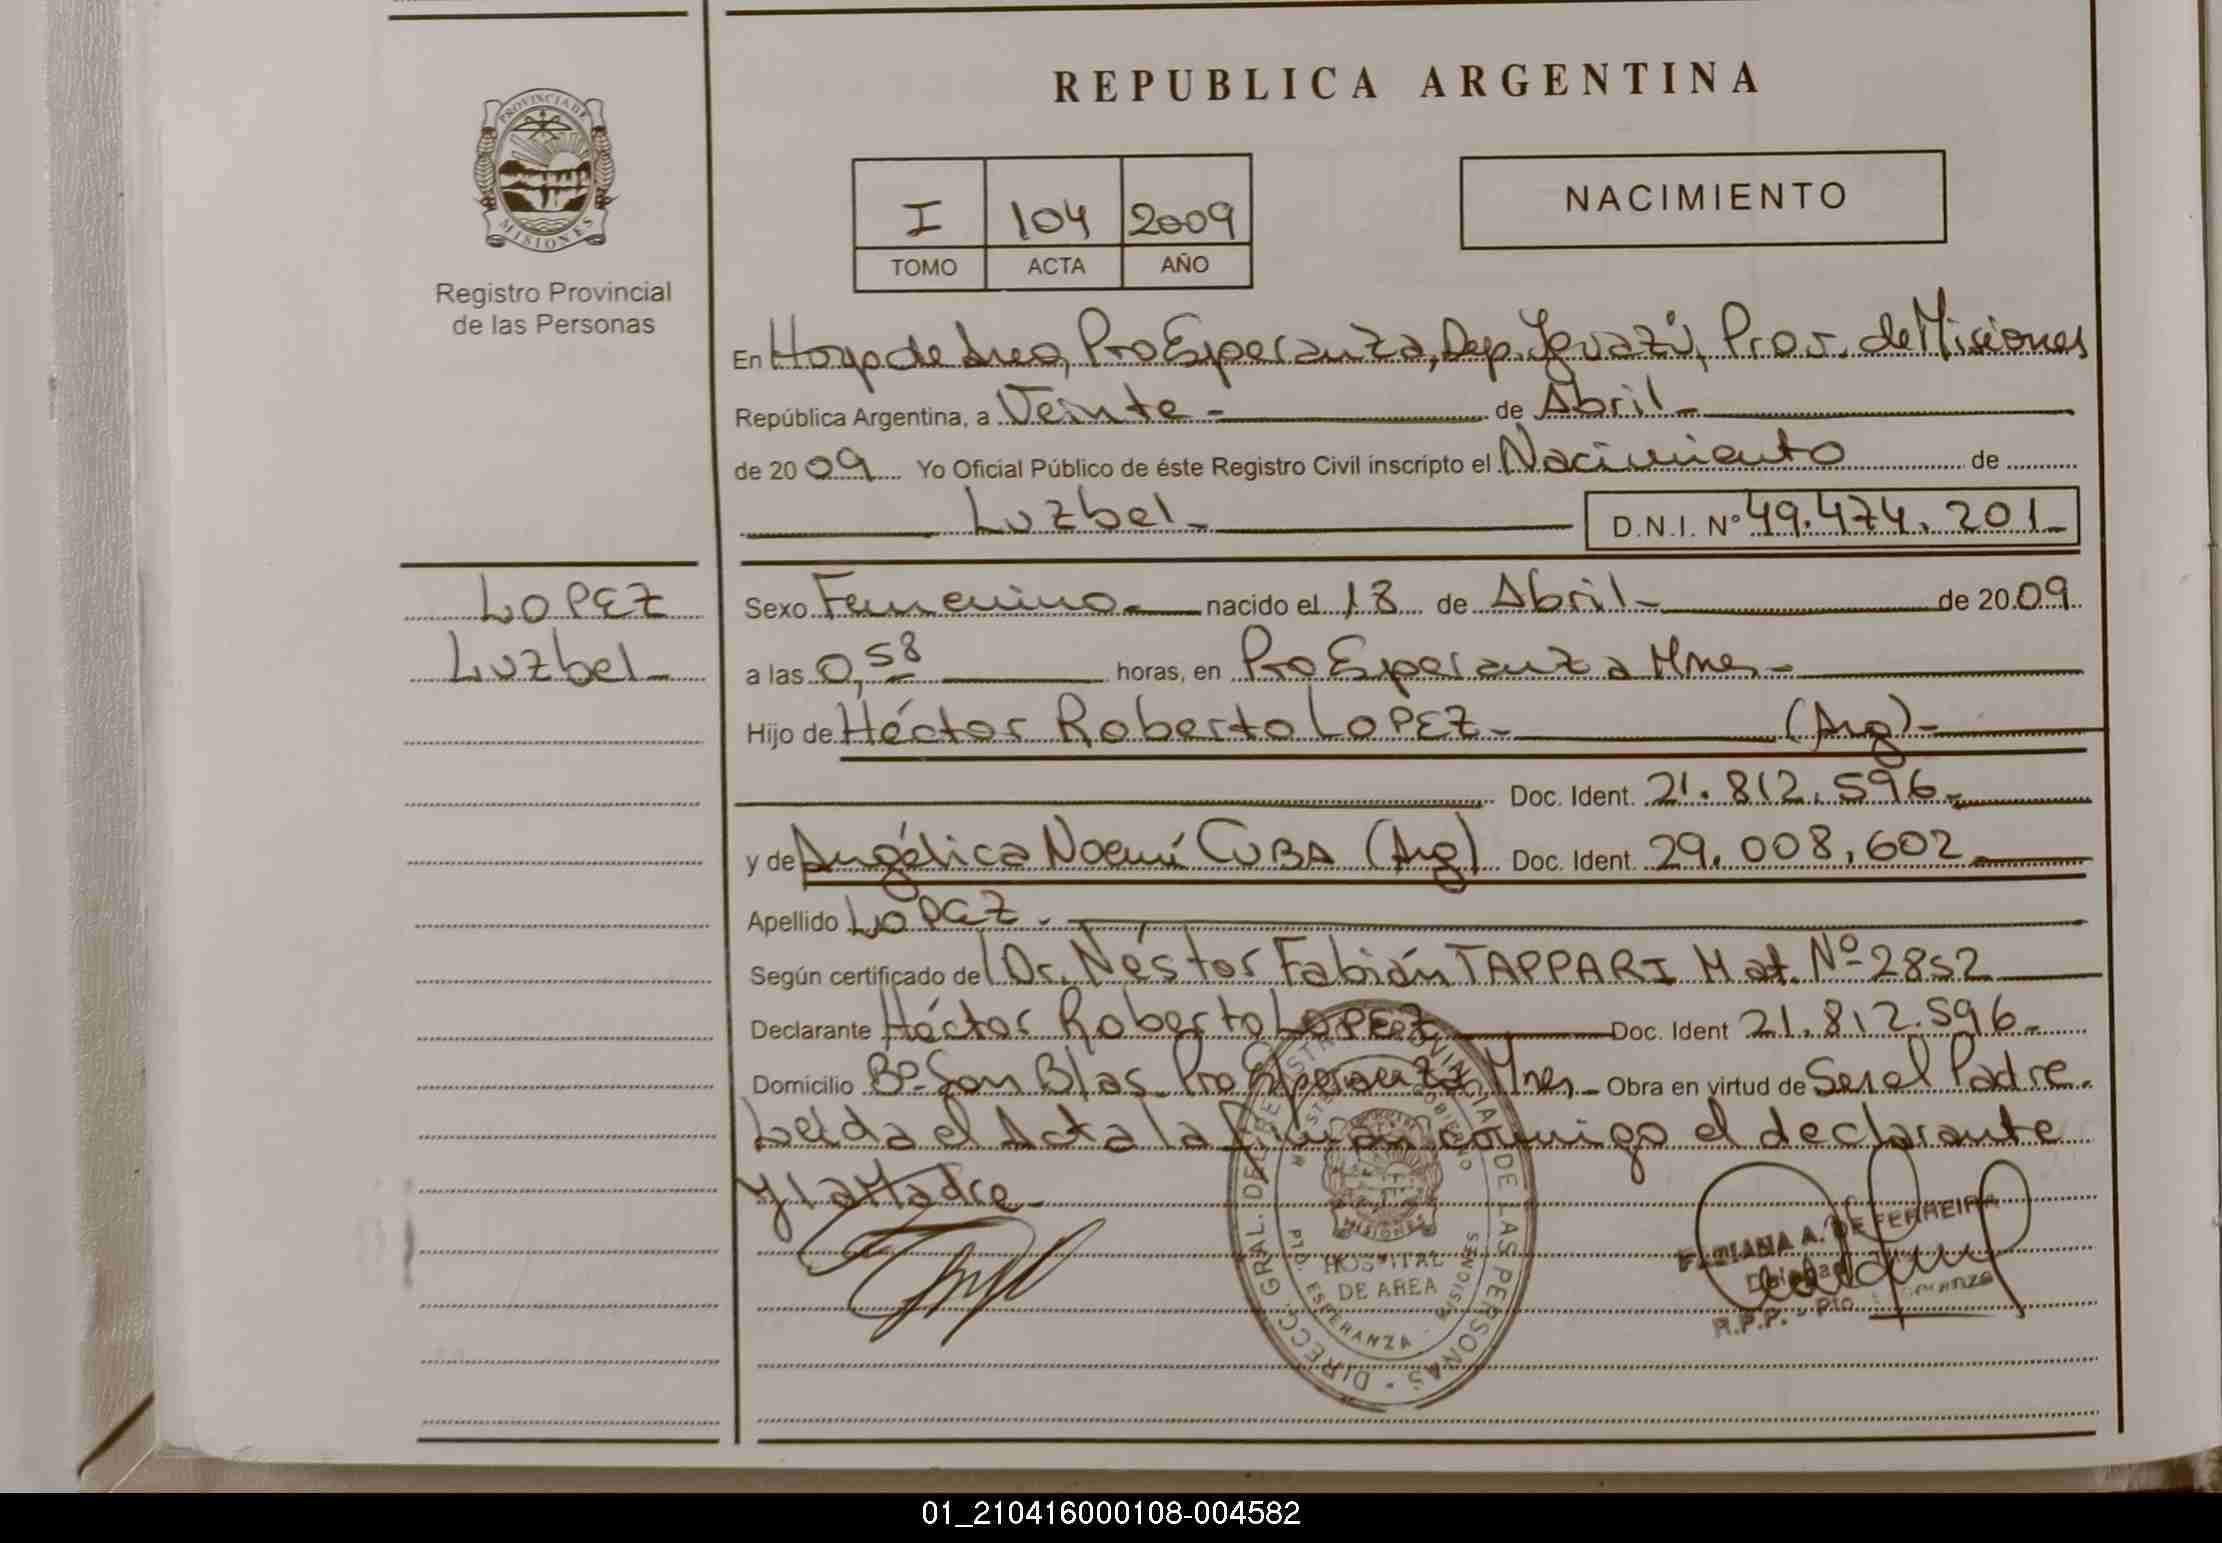 REPUBLICA ARGENTINA
PROVINCIA DE
MISIONES
Registro Provincial
de las Personas
I 104 2009
TOMO ACTA AÑO
NACIMIENTO
En Hosp de Area, Pto Esperanza, Dep. Iguazú, Prov. de Misiones
República Argentina, a Veinte - de Abril -
de 2009 Yo Oficial Público de éste Registro Civil inscripto el Nacimiento de
Luzbel -
D.N.I. Nº 49.474.201 -
LOPEZ
Luzbel -
Sexo Femenino - nacido el 18 de Abril - de 2009
a las 0,58 horas, en Pto Esperanza Mnes -
Hijo de Héctor Roberto LOPEZ - (Arg) -
Doc. Ident. 21.812.596 -
y de Angélica Noemí CUBA (Arg) Doc. Ident. 29.008.602 -
Apellido LOPEZ -
Según certificado del Dr. Néstor Fabián TAPPARI Mat. Nº 2852
Declarante Héctor Roberto LOPEZ Doc. Ident 21.812.596 -
Domicilio Bº San Blas Pto Esperanza Mnes - Obra en virtud de Ser el Padre.
Leída el Acta la firman conmigo el declarante
y la Madre -
DIRECC. GRAL. DEL REGISTRO PROVINCIAL DE LAS PERSONAS
MISIONES
HOSPITAL
DE AREA
PTO. ESPERANZA - MISIONES
FABIANA A. DE FERREIRA
R.P.P. - Pto Esperanza
01_210416000108-004582